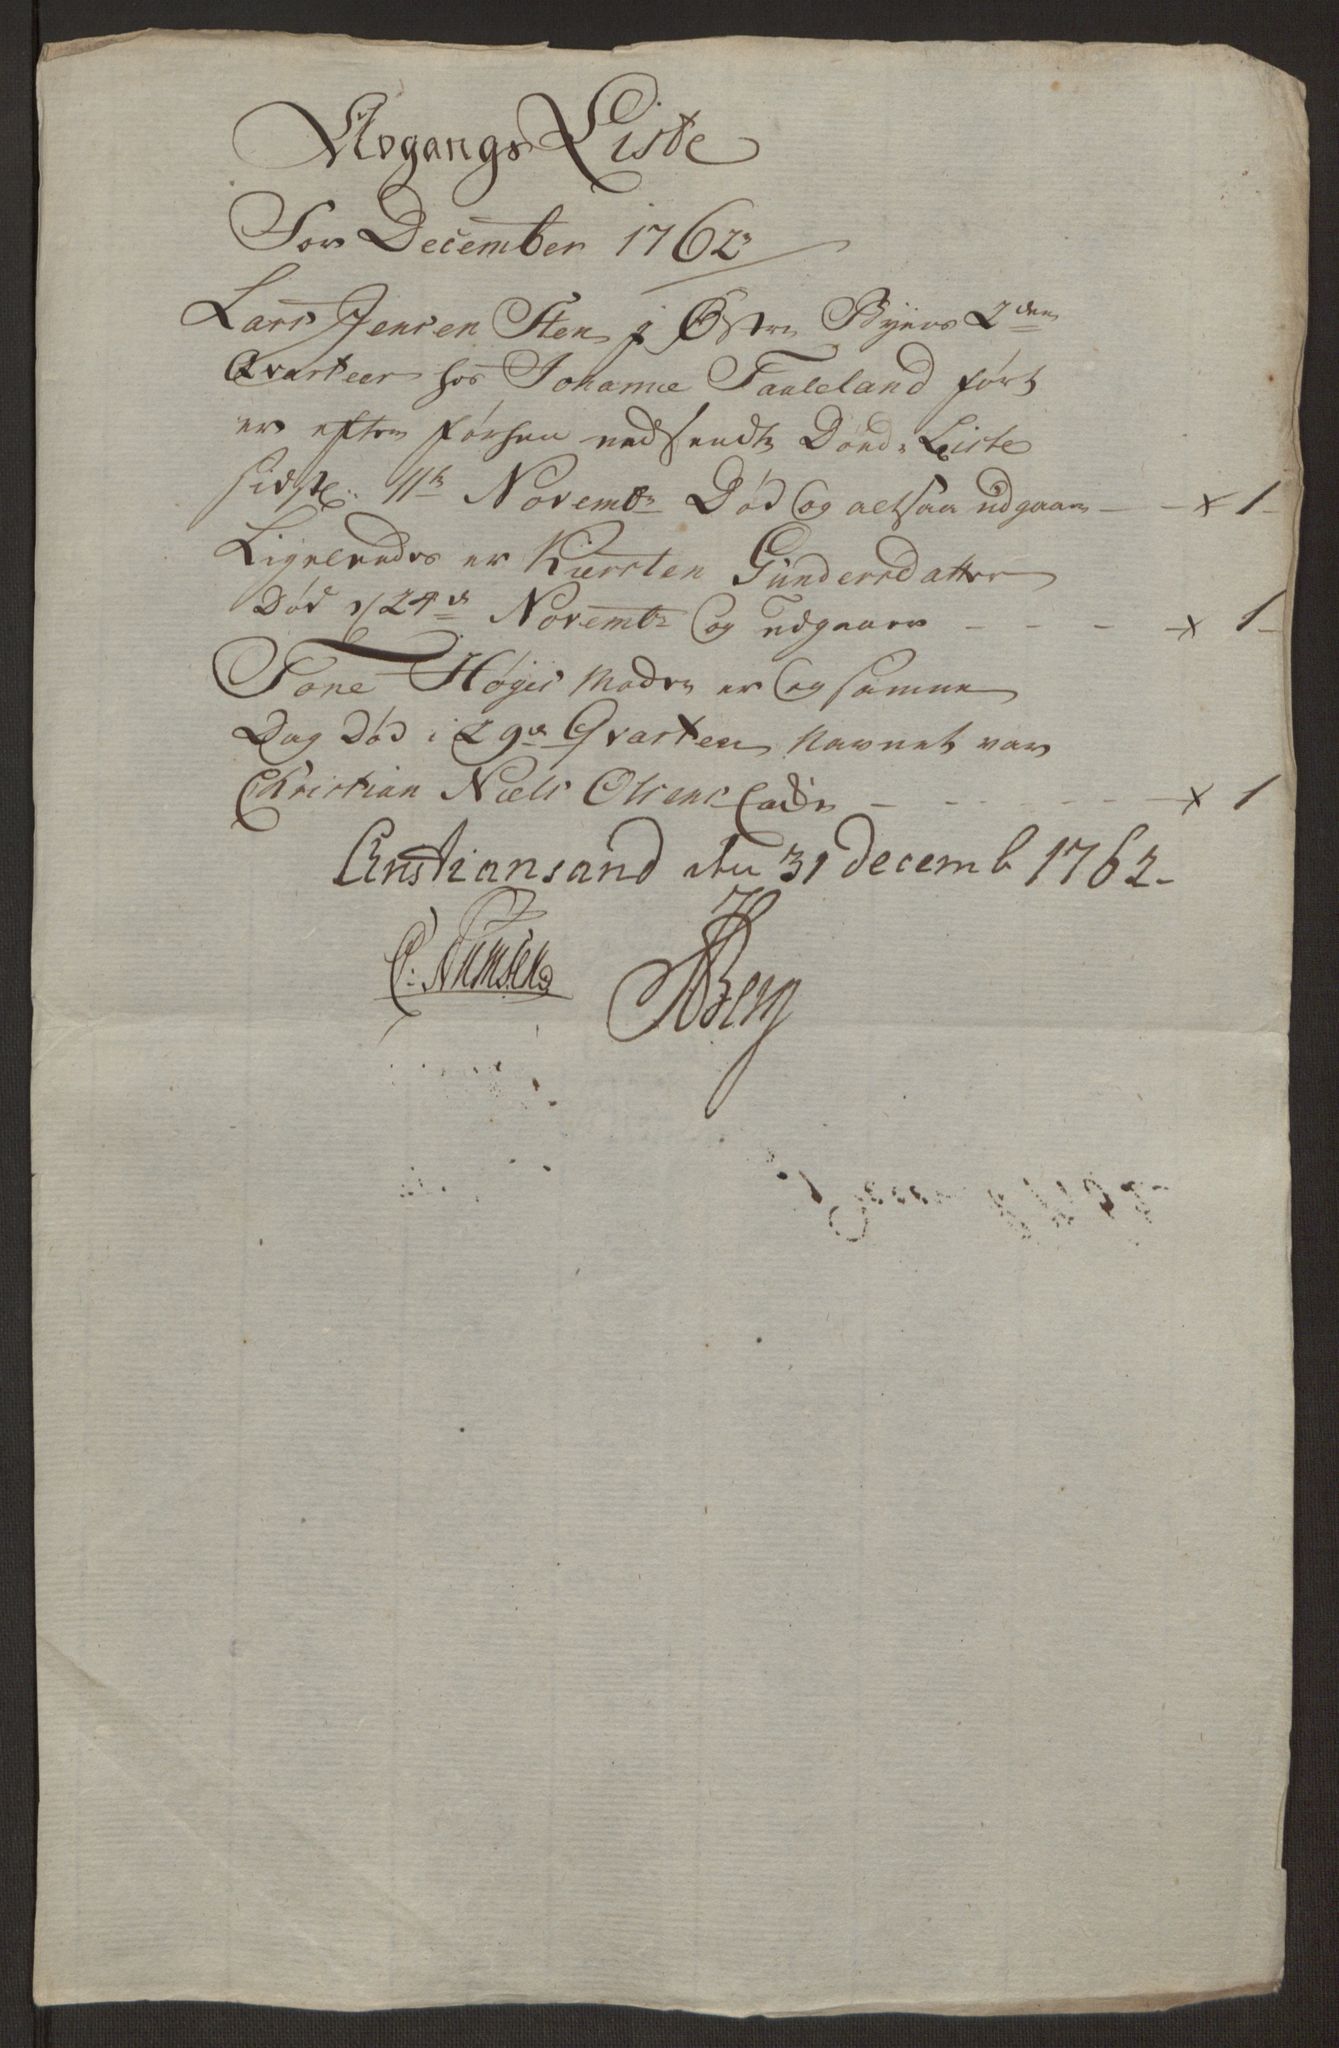 Avgangs Liste
For December 1762
Lars Jensen Sten j Østre Byens 2den
Qvarteer hos Johanne Faaleland ført
er efter forhen nedsendte Døde Liste
sidste 11te Novembr Død og altsaa udgaar - - x 1 -
Ligeleedes er Kiersten Gundersdatter
Død d 24de Novembr og udgaar - - - - x 1 -
Tone Høyes Moder er og samme
Dag Død i 29de Qvarteer Navnet var
Christian Niels Olsens - - - - - - x 1
Christiansand den 31 decemb 1762 -
C: Numsen
Berg